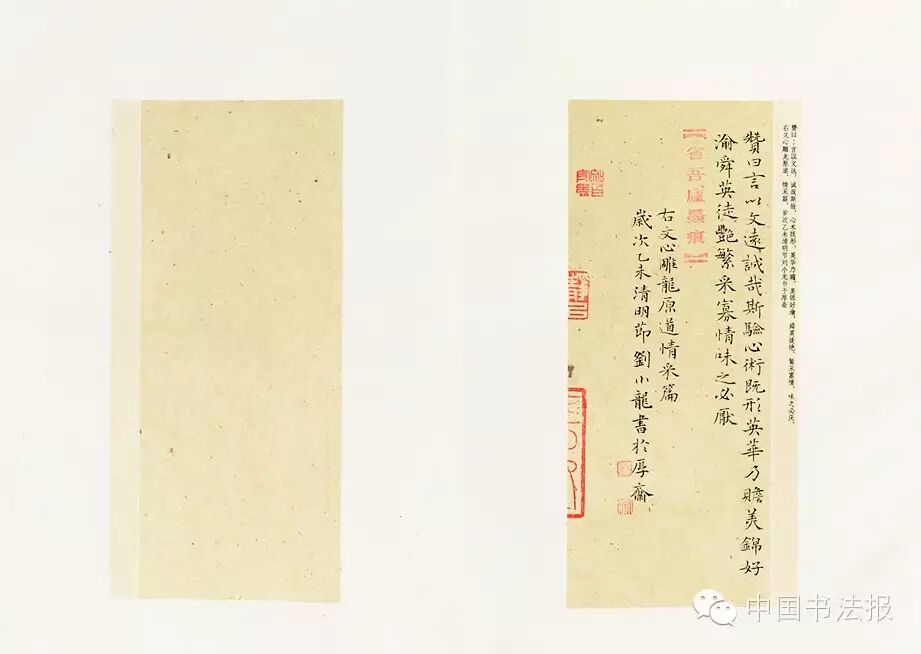 赞曰：言以文远，诚哉斯验，心术既形，英华乃赡，美锦好渝，舜英徒艳，繁采寡情，味之必厌。
右文心雕龙原道，情采篇，岁次乙未清明节刘小龙书于厚斋
贊曰言以文遠誠哉斯驗心術既形英華乃贍美錦好
渝舜英徒艷繁采寡情味之必厭
【省吾廬墨痕】
右文心雕龍原道情采篇
歲次乙未清明節劉小龍書於厚齋
中国书法报